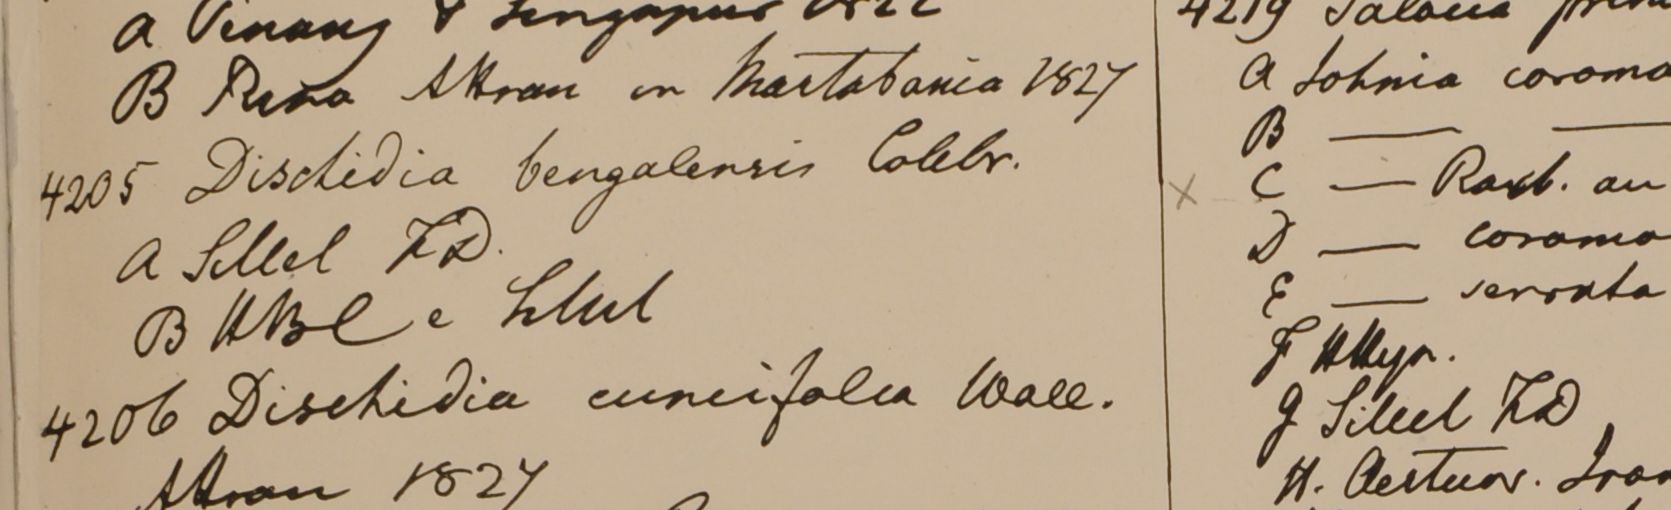 a Penang & Singapur 1822
B Ripa Attran in Martabania 1827
4205 Dischidia bengalensis Colebr.
a Sillet F.D.
B HBC e Sillet
4206 Dischidia cuneifolia Wall.
Attran 1827
4219 Salacia
a Johnia coroma
B — —
x C — Roxb. an
D — coroma
E — serrata
F HHeyn.
G Sillet FD
H. Aestuar. Irar